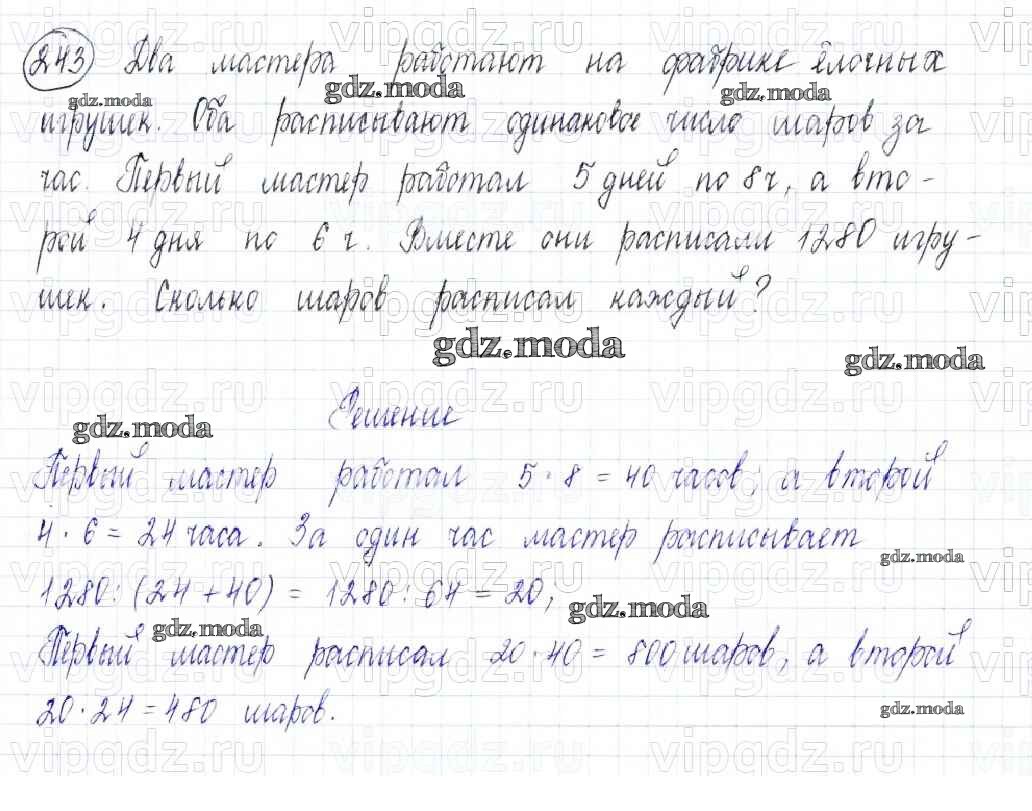 243 Два мастера работают на фабрике ёлочных
игрушек. Оба расписывают одинаковое число шаров за
час. Первый мастер работал 5 дней по 8 ч, а вто-
рой 4 дня по 6 ч. Вместе они расписали 1280 игру-
шек. Сколько шаров расписал каждый?
Решение
Первый мастер работал 5 · 8 = 40 часов, а второй
4 · 6 = 24 часа. За один час мастер расписывает
1280 : (24 + 40) = 1280 : 64 = 20;
Первый мастер расписал 20 · 40 = 800 шаров, а второй
20 · 24 = 480 шаров.
gdz.moda
vipgdz.ru